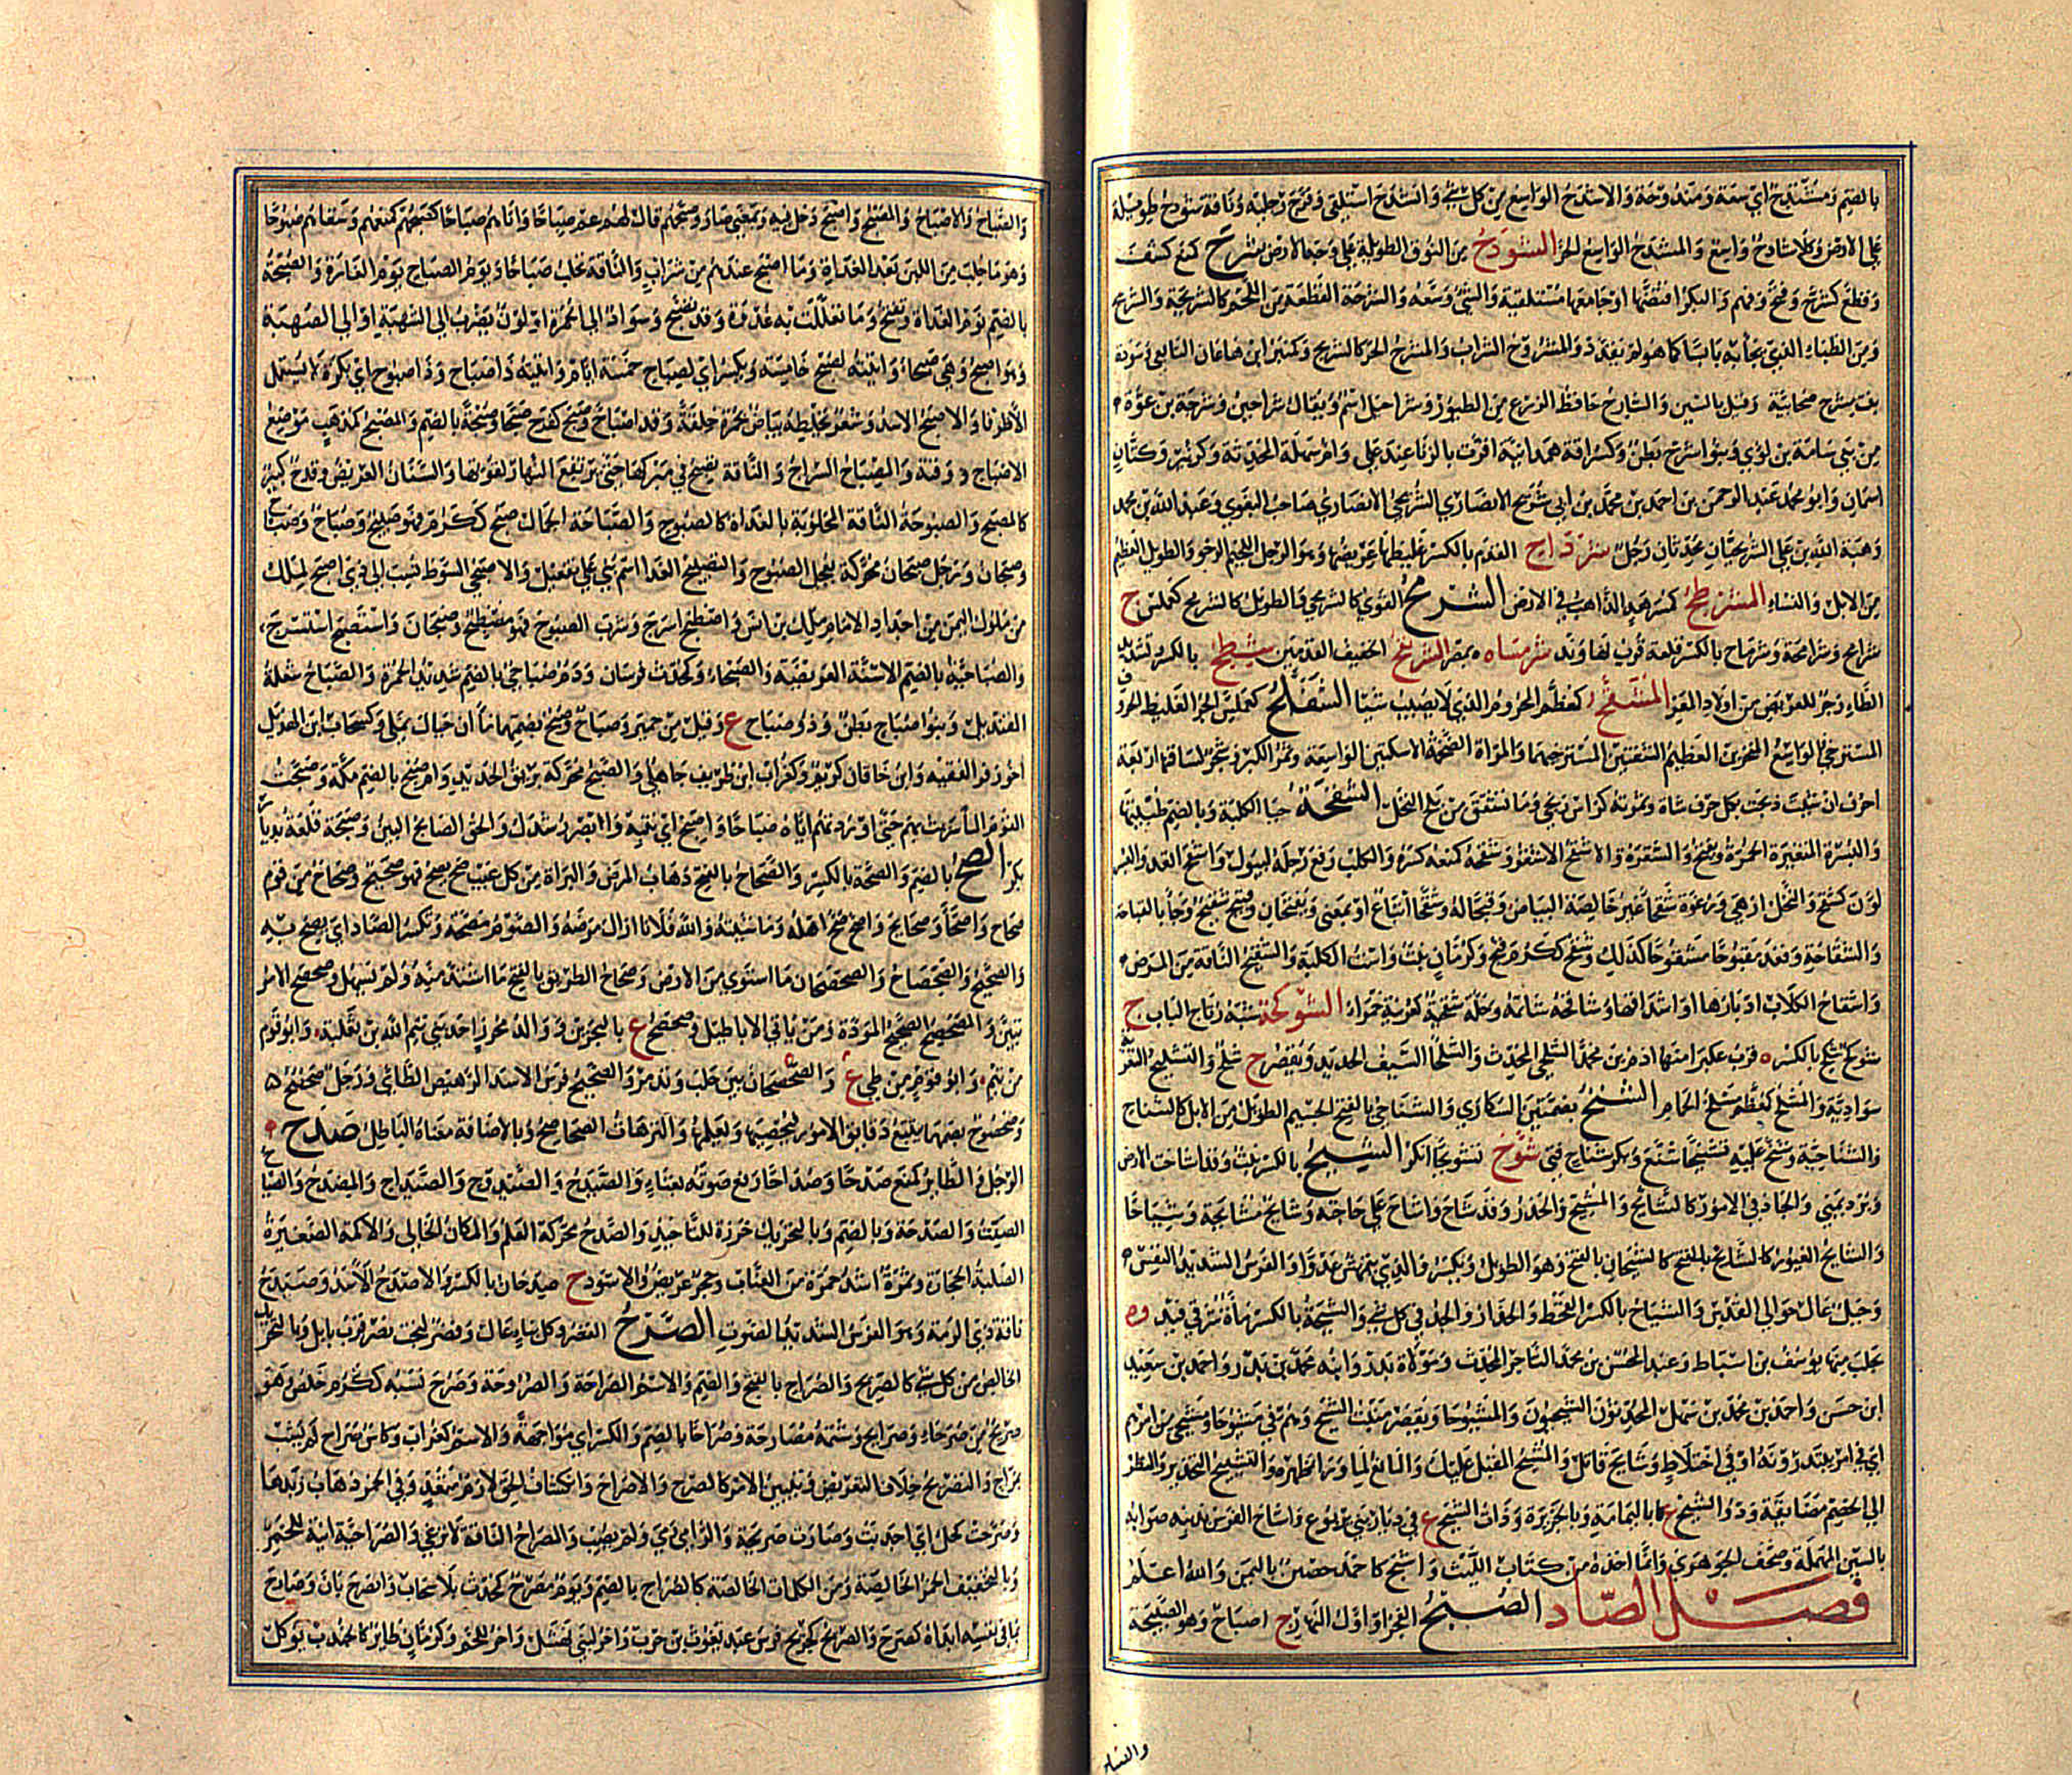 بالضم ومُنتَدح اي سعة ومندوحة والاشدح الواسع من كل شيء وانشدح استلقى وفرّج رجليه وناقة شودح طويلة
على الارض وكلأ شادح واسع والمشدح الواسع الحر الشودح من النوق الطويلة على وجه الارض شرح كمنع كشف
وقطع كشرّح وفتح وفهم والبكر افتضها او جامعها مستلقية والشيء وسّعه والشرحة القطعة من اللحم كالشريحة والشريح
ومن الظباء الذي يجاء به يابسا كما هو لم يقدد والمشروح الشراب والمشرح الحر كالشريح وكمنبر ابن هاعان التابعي وسودة
بنت مشرح صحابية وقيل بالسين والشارح حافظ الزرع من الطيور وشراحيل اسم ويقال شراحين وشرحة بن عوة
من بني سامة بن لؤي وبنو شرح بطن وكسراقة همدانية اقرت بالزنا عند علي وام سهلة المحدثة وكزبير وكتان
اسمان وابو محمد عبد الرحمن بن احمد بن محمد بن ابي شريح الانصاري الشريحي الانصاري صاحب البغوي وعبد الله بن محمد
وهبة الله بن علي الشريحيان محدثان رجل شرداح القدم بالكسر غليظها عريضها وهو الرجل اللحيم الرخو والطويل العظيم
من الابل والنساء المشرطح كمسرهد الذاهب في الارض الشرمح القوي كالشرمحي والطويل كالشرمح كعملس ج
شرامح وشرامحة وشرماح بالكسر قلعة قرب نهاوند شرمساح ة بمصر الشرنفح الخفيف القدمين شطح بالكسر وتشديد
الطاء زجر للعريض من اولاد المعز المشفح كمعظم المحروم الذي لا يصيب شيئا الشفلح كعملس الحر الغليظ الحروف
المسترخي الواسع المنخرين العظيم الشفتين المسترخيهما والمرأة الضخمة الاسكتين الواسعة وثمر الكبر وشجر لساقها اربعة
احرف ان شئت ذبحت بكل حرف شاة وثمرته كرأس زنجي وما تشقق من بلح النخل الشقحة حيا الكلبة وبالضم ظبيتها
والبسرة المتغيرة الحمرة ويفتح والشقرة والاشقح الاشقر وشقحه كمنعه كسره والكلب رفع رجله ليبول واشقح القد والبسر
لوّن كشقح والنخل ازهى ورغوة شقحاء غير خالصة البياض وقبحا له وشقحا اتباع او بمعنى ويفتحان وقبيح شقيح وجاء بالقباحة
والشقاحة وقعد مقبوحا مشقوحا كذلك وشقح ككرم قبح وكرمان نبت واست الكلبة والشقيح الناقة من المرض
واشقاح الكلاب ادبارها او اشداقها وشاقحه شاتمه وحلة شقحية كعربية حمراء الشوكحة شبه رتاج الباب ج
شوكح شلح بالكسر ة قرب عكبرا منها ادم بن محمد الشلحي المحدث والشلحاء السيف الحديد ويقصر ج شلح والتشليح التعرية
سوادية والمشلح كمعظم مسلخ الحمام الشنح بضمتين السكارى والشناحي بالفتح الجسيم الطويل من الابل كالشناح
والشناحية وشنح عليه تشنيحا شنع وبكر شناح فتي شوّح تشويحا انكر الشيح بالكسر نبت وقد اشاحت الارض
وبرد يمني والجاد في الامور كالشائح والمشيح والحذر وقد شاح واشاح على حاجته وشايح مشايحة وشياحا
والشائح الغيور كالشايح بالفتح كالشيحان بالفتح وهو الطويل ويكسر والذي يتهمش عدوا والفرس الشديد النفس
وجبل عال حوالي القدس والشياح بالكسر القحط والحذار والجد في كل شيء والشيحة بالكسر ماءة شرقي فيد وة
بحلب منها يوسف بن اسباط وعبد المحسن بن محمد التاجر المحدث ومولاه بدر وابنه محمد بن بدر واحمد بن سعيد
ابن حسن واحمد بن محمد بن سهل المحدثون الشيحيون والمشيوحاء ويقصر منبت الشيح وهم في مشيوحاء ومشيحى من امرهم
اي في امر يبتدرونه او في اختلاط وشايح قاتل والمشيح المقبل عليك والمانع لما وراء ظهره والتشييح التحذير والنظر
الى الخصم مضايقة وذو الشيح ع كابا باليمامة وبالجزيرة وذات الشيح ع في ديار بني يربوع واشاح الفرس بذنبه صوابه
بالسين المهملة وصحف الجوهري وانما اخذه من كتاب الليث واشيح كاحمد حصن باليمن والله اعلم
فصل الصاد الصبح الفجر او اول النهار ج اصباح وهو الصبيحة
والصبا
والصباح والاصباح والمصبح واصبح دخل فيه وبمعنى صار وصبحهم قال لهم عم صباحا واتاهم صباحا كصبحهم كمنعهم وسقاهم صبوحا
وهو ما حلب من اللبن بعد الغداة وما اصبح عندهم من شراب والناقة تحلب صباحا ويوم الصباح يوم الغارة والصبحة
بالضم نوم الغداة وتفتح وما تعللت به غدوة وقد تصبح وسواد الى الحمرة او لون يضرب الى الشهبة او الى الصهبة
وهو اصبح وهي صبحاء واتيته لصبح خامسة ويكسر اي لصباح خمسة ايام واتيته ذا صباح وذا صبوح اي بكرة لا يستعمل
الا ظرفا والاصبح الاسد وشعر يخلطه بياض بحمرة خلقة وقد اصباح وصبح كفرح صبحا وصبحة بالضم والمصبح كمذهب موضع
الاصباح ووقته والمصباح السراج والناقة تصبح في مبركها حتى يرتفع النهار لقوتها والسنان العريض وقدح كبير
كالمصبح والصبوحة الناقة المحلوبة بالغداة كالصبوح والصباحة الجمال صبح ككرم فهو صبيح وصباح وصباح
وصبحان ورجل صبحان محركة يعجل الصبوح والتصبيح الغداء اسم بني على تفعيل والاصبحي السوط نسبت الى ذي اصبح لملك
من ملوك اليمن من اجداد الامام مالك بن انس واصطبح اسرج وشرب الصبوح فهو مصطبح وصبحان واستصبح استسرج
والصباحية بالضم الاسنة العريضة والصبحاء وكمحدث فرسان ودم صباحي بالضم شديد الحمرة والصباح شعلة
القنديل وبنو صباح بطن وذو صباح ع وقيل من حمير وصباح وصبح بضمهما ماءان حيال نملى وكسحاب ابن الهذيل
اخو زفر الفقيه وابن خاقان كريم وكغراب ابن طريف جاهلي والصبح محركة بريق الحديد وام صبح بالضم مكة وصبحت
القوم الماء سريت بهم حتى اوردتهم اياه صباحا واصبح اي انتبه وابصر رشدك والحق الصابح البين وصبحة قلعة بديار
بكر الصح بالضم والصحة بالكسر والصحاح بالفتح ذهاب المرض والبراءة من كل عيب صح يصح فهو صحيح وصحاح من قوم
صحاح واصحاء وصحائح واصح صح اهله وماشيته والله فلانا ازال مرضه والصوم مصحة وتكسر الصاد اي يصح به
والصحصح والصحصاح والصحصحان ما استوى من الارض وصحاح الطريق بالفتح ما اشتد منه ولم يسهل وصحصح الامر
تبين والمصحصح الصحيح المودة ومن ياتي الاباطيل وصحصح ع بالبحرين ووالد محرز احد بني تيم الله بن ثعلبة وابو قوم
من تيم وابو قوم من طي ع والصحصحان بين حلب وتدمر والصحيح فرس الاسد الرهيص الطائي ورجل صحصح
وصحصوح بضمهما يتتبع دقائق الامور فيحصيها ويعلمها والترهات الصحاصح وبالاضافة معناه الباطل صدح
الرجل والطائر كمنع صدحا وصداحا رفع صوته بغناء والصيدح والصدوح والصيداح والمصدح والصياح
الصيت والصدحة وبالضم وبالتحريك خرزة للتأخيذ والصدح محركة العلم والمكان الخالي والاكمة الصغيرة
الصلبة الحجارة وثمرة اشد حمرة من العناب وحجر عريض والاسود ج صدحان بالكسر والاصدح الاسد وصيدح
ناقة ذي الرمة وهو الفرس الشديد الصوت الصرح القصر وكل بناء عال وقصر لبخت نصر قرب بابل وبالتحريك
الخالص من كل شيء كالصريح والصراح بالفتح والضم والاسم الصراحة والصروحة وصرح نسبه ككرم خلص وهو
صريح من صرحاء وصرايح وشتمه مصارحة وصراحا بالضم والكسر اي مواجهة والاسم كغراب وكاس صراح لم تشب
بمزاج والتصريح خلاف التعريض وتبيين الامر كالصرح والاصراح وانكشاف الحق لازم متعد وفي الخمر ذهاب زبدها
وصرحت كحل اي اجدبت وصارت صريحة والرامي رمى ولم يصب والمصراح الناقة لا ترغي والصراحية انية للخمر
وبالتخفيف الخمر الخالصة ومن الكلمات الخالصة كالصراح بالضم ويوم مصرح كمحدث بلا سحاب وانصرح بان وصارح
بما في نفسه ابداه كصرح والصريح كجريح فرس عبد يغوث بن حرب واخر لبني نهشل واخر للخم وكرمان طائر كالجندب يؤكل